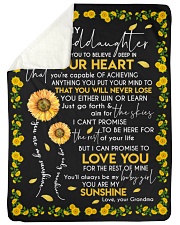 ddaughter
YOU TO BELIEVE DEEP IN
UR HEART
you're capable of achieving
ANYTHING YOU PUT YOUR MIND TO
THAT YOU WILL NEVER LOSE
YOU EITHER WIN OR LEARN
Just go forth &
aim for the skies
I CAN'T PROMISE
TO BE HERE FOR
the rest of your life
BUT I CAN PROMISE TO
LOVE YOU
FOR THE REST OF MINE
You'll always be my baby girl
YOU ARE MY
SUNSHINE
Love, your Grandma